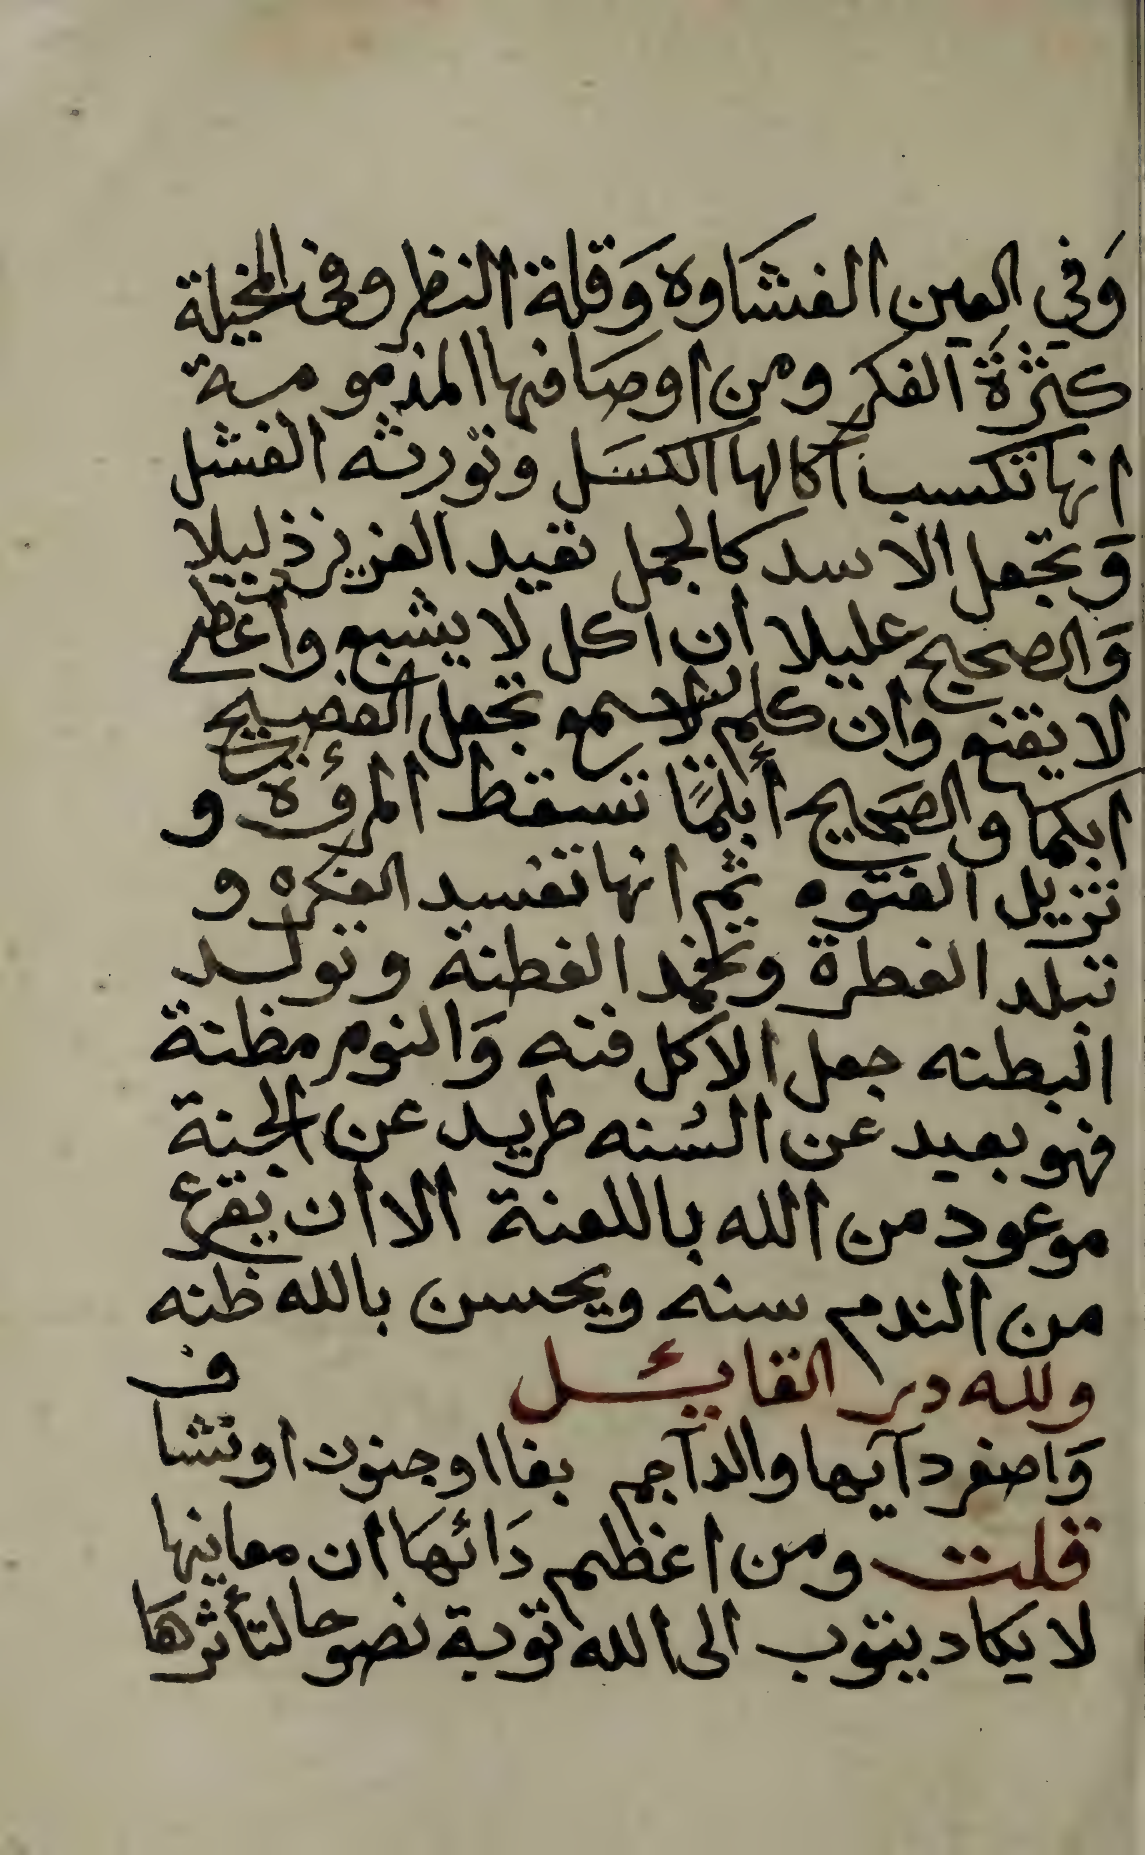 وَفي العين الغشَاوه وَقلة النظر وفى المخيلة
كَثْرَةَ الفكر ومن اوصَافها المذمومـة
انها تكسب آكالها الكسَل وتورثه الفشل
وَتجعل الاسد كالجمل تعيد العزيز ذليلا
وَالصحيح عليلا ان اكل لا يشبع وان أعطى
لا يقنع وان كلم لا يسمع تجعل الفصيح
ابكما والصَحيح أبلمًا تسقط المرؤة و
تزيل الفتوه ثم انها تفسد الفكره و
تبلد الفطرة وتخمد الفطنة وتولـد
البطنه جعل الاكل فنه وَالنوم مظنة
فهو بعيد عن السُنه طريد عن الجنة
موعود من الله باللعنة الا ان يقرع
من الندم سنه ويحسن بالله ظنه
ولله در القايـئـل ف
وَاصغر دآيها والدآجم بغا او جنون او نشا
قلت ومن اعظم دَائهَا ان معاينها
لا يكاد يتوب الى الله توبة نصوحا لتأثرهَا